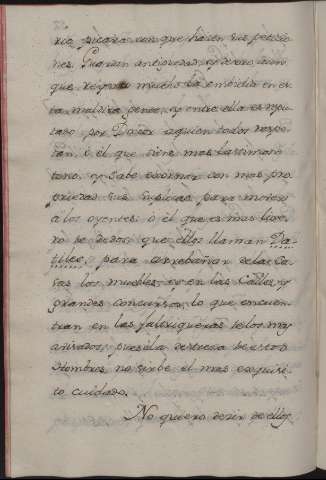 ria picara con que hacen sus peticio
nes. Guardan antiguedad, y dexe, aun
que reyna mucho la embidia en es
ta maldita gente, y entre ella es repu
tado por Dañor aquien todos respe
tan, ó él que tiene mas lastimoso
tono, y sabe exornar con mas pro
priedad sus suplicas para mover
à los oyentes, ò él que es mas lixe
ro de dedos, que ellos llaman Da
tiles, para arrebañar de las Ca
sas los muebles, y en las Calles, y
grandes concursos, lo que encuen
tran en las faltriqueras de los mas
avisados, pues à la destreza de estos
Hombres no sirbe el mas exquisi
to cuidado.
No quiero decir de ellos